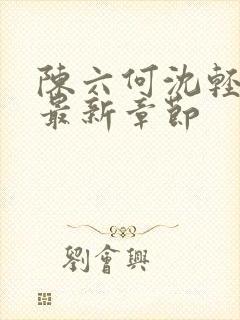 陳六何沈輕
最新章節
劉會興